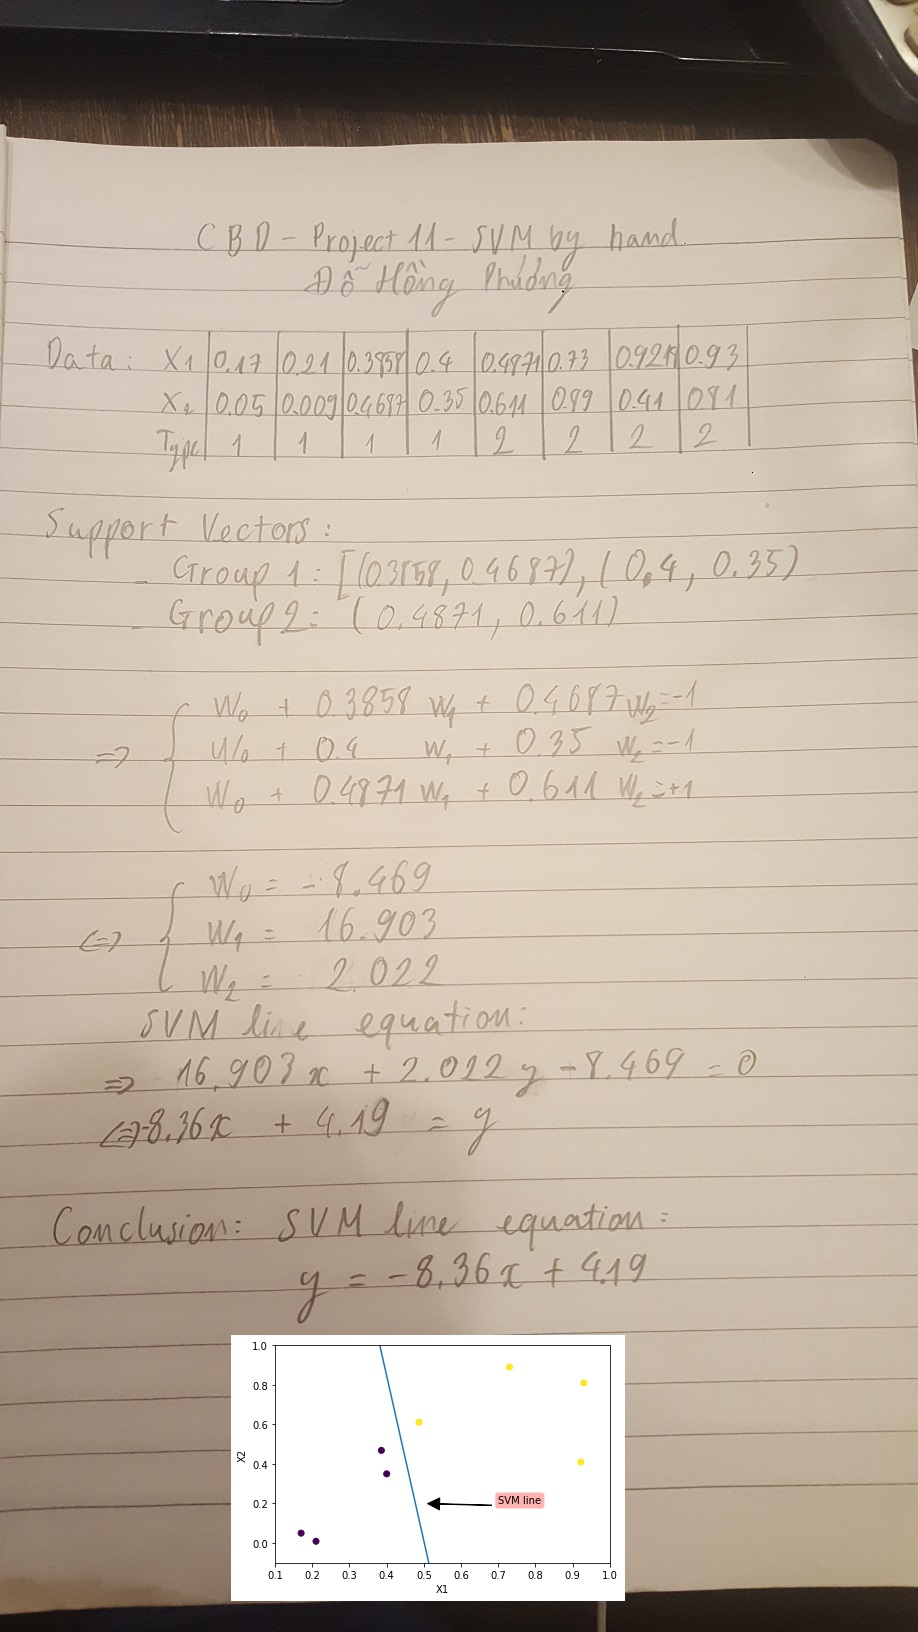 CBD - Project 11 - SVM by hand.
Đỗ Hồng Phượng
Data: X1 0.17 0.21 0.3858 0.4 0.4871 0.73 0.9218 0.93
X2 0.05 0.009 0.4687 0.35 0.611 0.89 0.41 0.81
Type 1 1 1 1 2 2 2 2
Support Vectors:
- Group 1: [(0.3858, 0.4687), (0.4, 0.35)
- Group 2: (0.4871, 0.611)
W0 + 0.3858 W1 + 0.4687 W2 = -1
=> W0 + 0.4 W1 + 0.35 W2 = -1
W0 + 0.4871 W1 + 0.611 W2 = +1
W0 = -8.469
<=> W1 = 16.903
W2 = 2.022
SVM line equation:
=> 16.903x + 2.022y - 8.469 = 0
<=> -8.36x + 4.19 = y
Conclusion: SVM line equation:
y = -8.36x + 4.19
1.0
0.8
0.6
X2
0.4
0.2
SVM line
0.0
0.1 0.2 0.3 0.4 0.5 0.6 0.7 0.8 0.9 1.0
X1